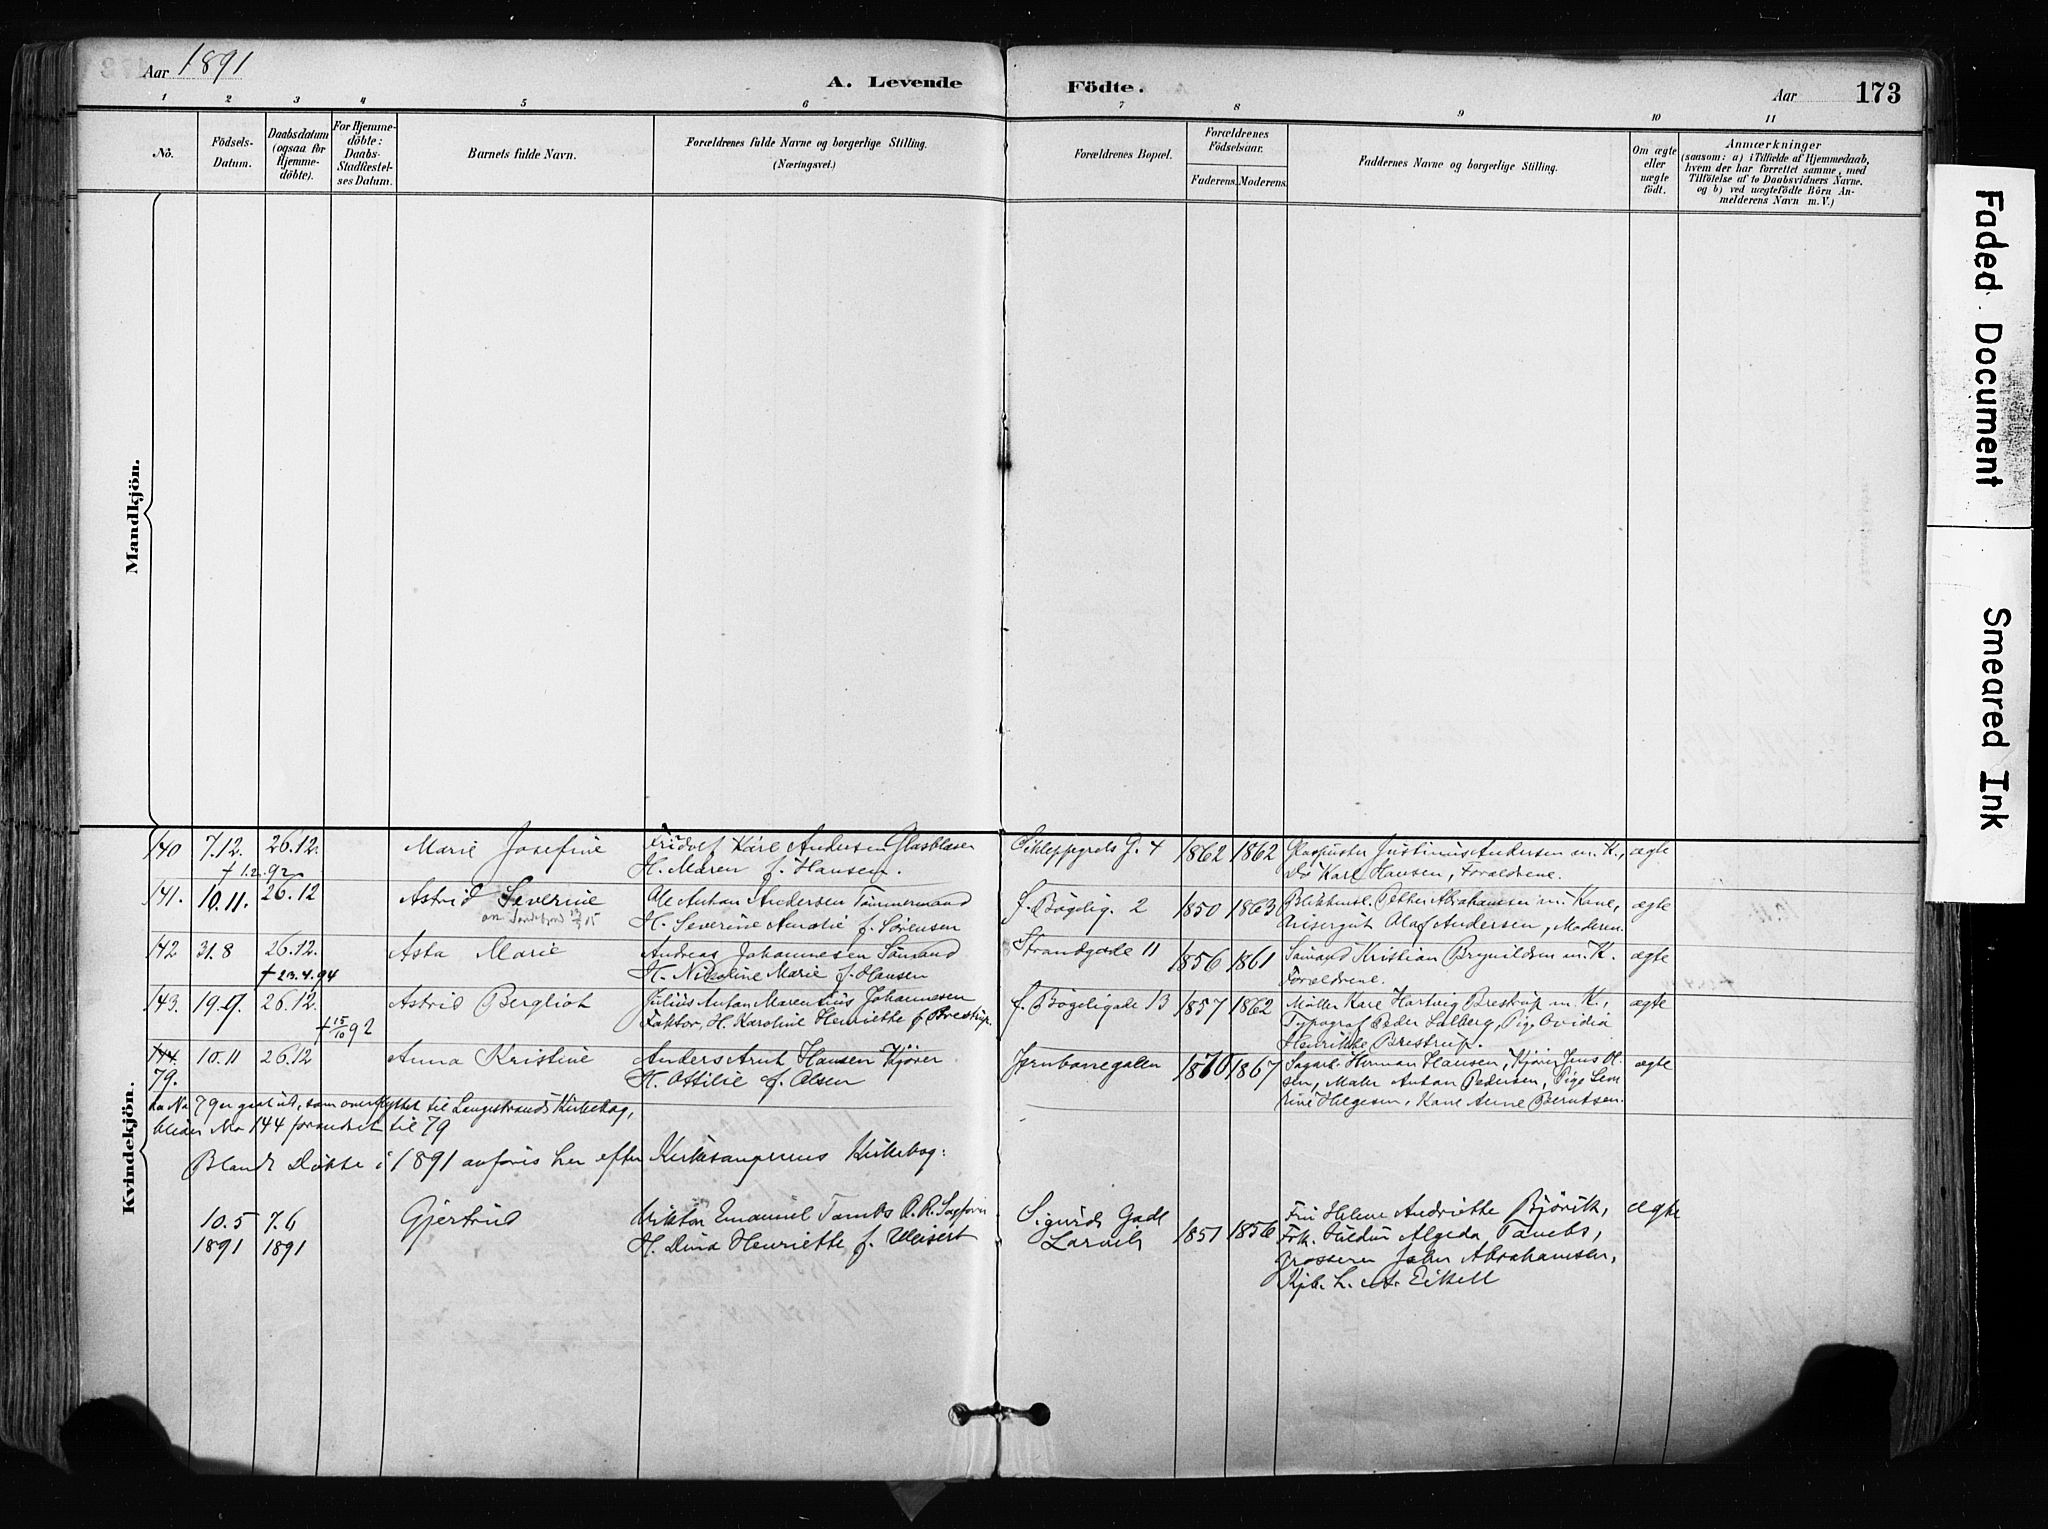 Aar 1891
A. Levende Födte.
Aar 173
1 2 3 4 5 6 7 8 9 10 11
No.
Födsels-Datum.
Daabsdatum (ogsaa for Hjemme-döbte).
For Hjemme-döbte: Daabs-Stadfæstel-ses Datum.
Barnets fulde Navn.
Forældrenes fulde Navne og borgerlige Stilling.
(Næringsvei.)
Forældrenes Bopæl.
Forældrenes Födselsaar.
Faderens. Moderens.
Faddernes Navne og borgerlige Stilling.
Om ægte eller uægte födt.
Anmærkninger
(saasom: a) i Tilfælde af Hjemmedaab,
hvem der har forrettet samme, med
Tilföielse af to Daabsvidners Navne.
og b) ved uægtefödte Börn An-
melderens Navn m. V.)
Mandkjön.
Kvindekjön.
140 7.12. 26.12. Marie Josefine Fridolf Karl Andersen Glasblaser
† 1.2.92 H. Maren f. Hansen.
G. 4 1862 1862 Justinius Andersen m. K., ægte
Karl Hansen, Forældrene.
141. 10.11. 26.12 Astrid Severine Ole Anton Andersen Tømmermand
H. Severine Amalie f. Sørensen
f. Bøgelig. 2 1850 1863 Petter Abrahamsen m. Kone, ægte
Olaf Andersen, Moderen.
142 31.8 26.12. Asta Marie Andreas Johannesen Sömand
† 23.4.94 H. Nikoline Marie f. Hansen
Strandgade 11 1856 1861 Sömand Kristian Brynildsen m. K. ægte
Forældrene.
143. 19.9. 26.12. Astrid Bergliot Julius Anton Marentius Johannesen
† 15/10 92 Faktor, H. Karoline Henriette f. Brestrup.
f. Bøgeligade 13 1857 1862 Møller Karl Hartvig Brestrup m. K., ægte
Typograf Peder Solberg, Pige Ovidia
Henrikke Brestrup.
144. 10.11 26.12 Anna Kristine Anders Arnt Hansen Kjører
79. H. Ottilie f. Olsen
Jernbanegaden 1870 1867 Herman Hansen, Kjører Jens Ol- ægte
sen, Maler Anton Pedersen, Pige Seve
rine Helgesen, Kone Anne Berntsen.
Da No 79 er gaat ud, som overflyttet til Langestrands Kirkebog,
bliver No 144 forandret til 79
Blandt Døbte i 1891 anføres her efter Kirkesangerens Kirkebog:
10.5 7.6 Gjertrud Viktor Emanuel Tambs
1891 1891 H. Dina Henriette f. Weisert
Sigurds Gade
Larvik 1851 1856 Fru Helene Andriette Bjørvik, ægte
Frk. Huldur Algeda Tambs,
Grosserer John Abrahamsen,
Kjb. L. A. Eikell
Faded Document
Smeared Ink